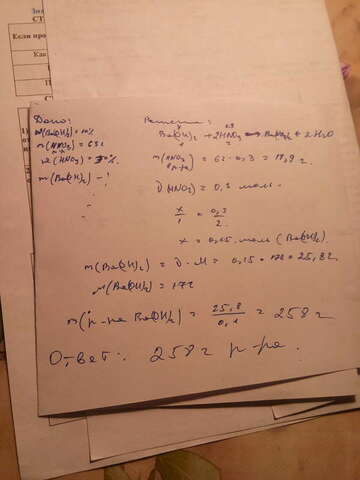 Дано:
w(Ba(OH)2) = 10%
m(HNO3) = 63 г
w(HNO3) = 30%
m(Ba(OH)2) - ?
Решение:
0,3
Ba(OH)2 + 2HNO3 → Ba(NO3)2 + 2H2O
1 2
m(HNO3) = 63 · 0,3 = 18,9 г.
в р-ре
ν(HNO3) = 0,3 моль
x/1 = 0,3/2
x = 0,15 моль (Ba(OH)2).
m(Ba(OH)2) = ν · M = 0,15 · 172 = 25,8 г
M(Ba(OH)2) = 172
m(р-ра Ba(OH)2) = 25,8/0,1 = 258 г
Ответ: 258 г р-ра.
Если про
Ка